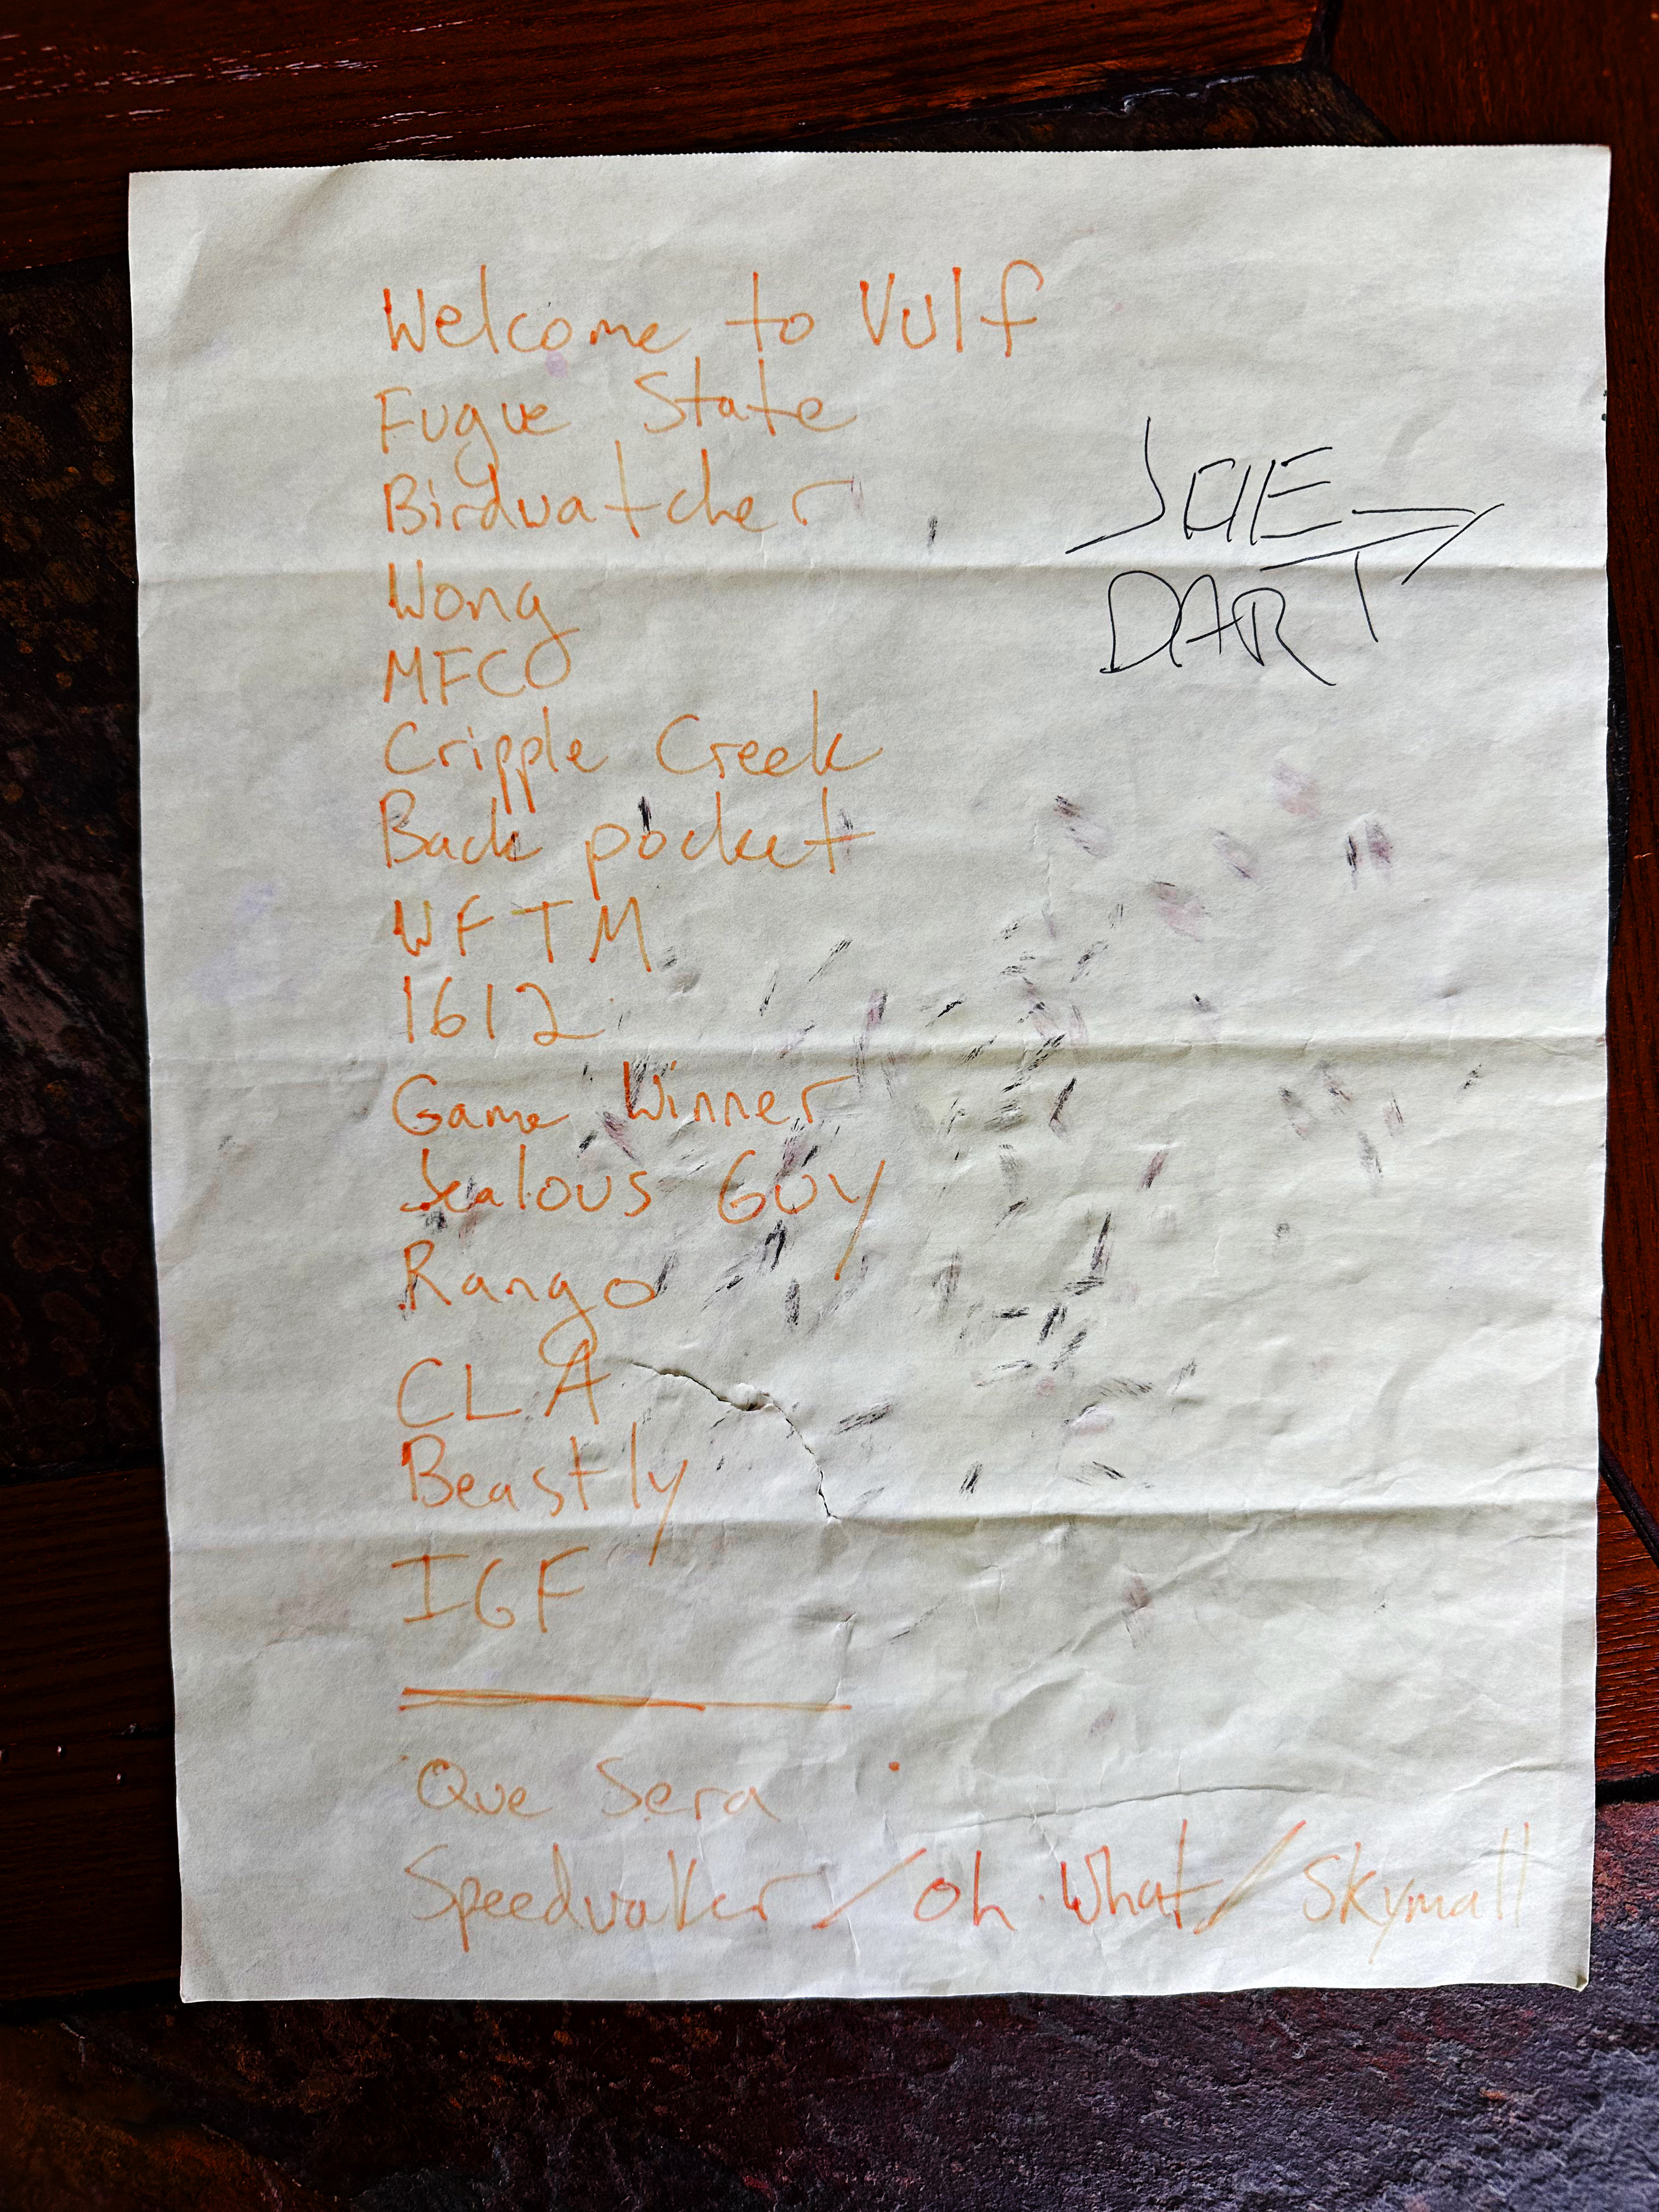 Welcome to Vulf
Fugue State
Birdwatcher
JOE
DART
Wong
MFCO
Cripple Creek
Back pocket
WFTM
1612
Game Winner
Jealous Guy
Rango
CLA
Beastly
IGF
Que Sera
Speedwalker / Oh What / Skymall